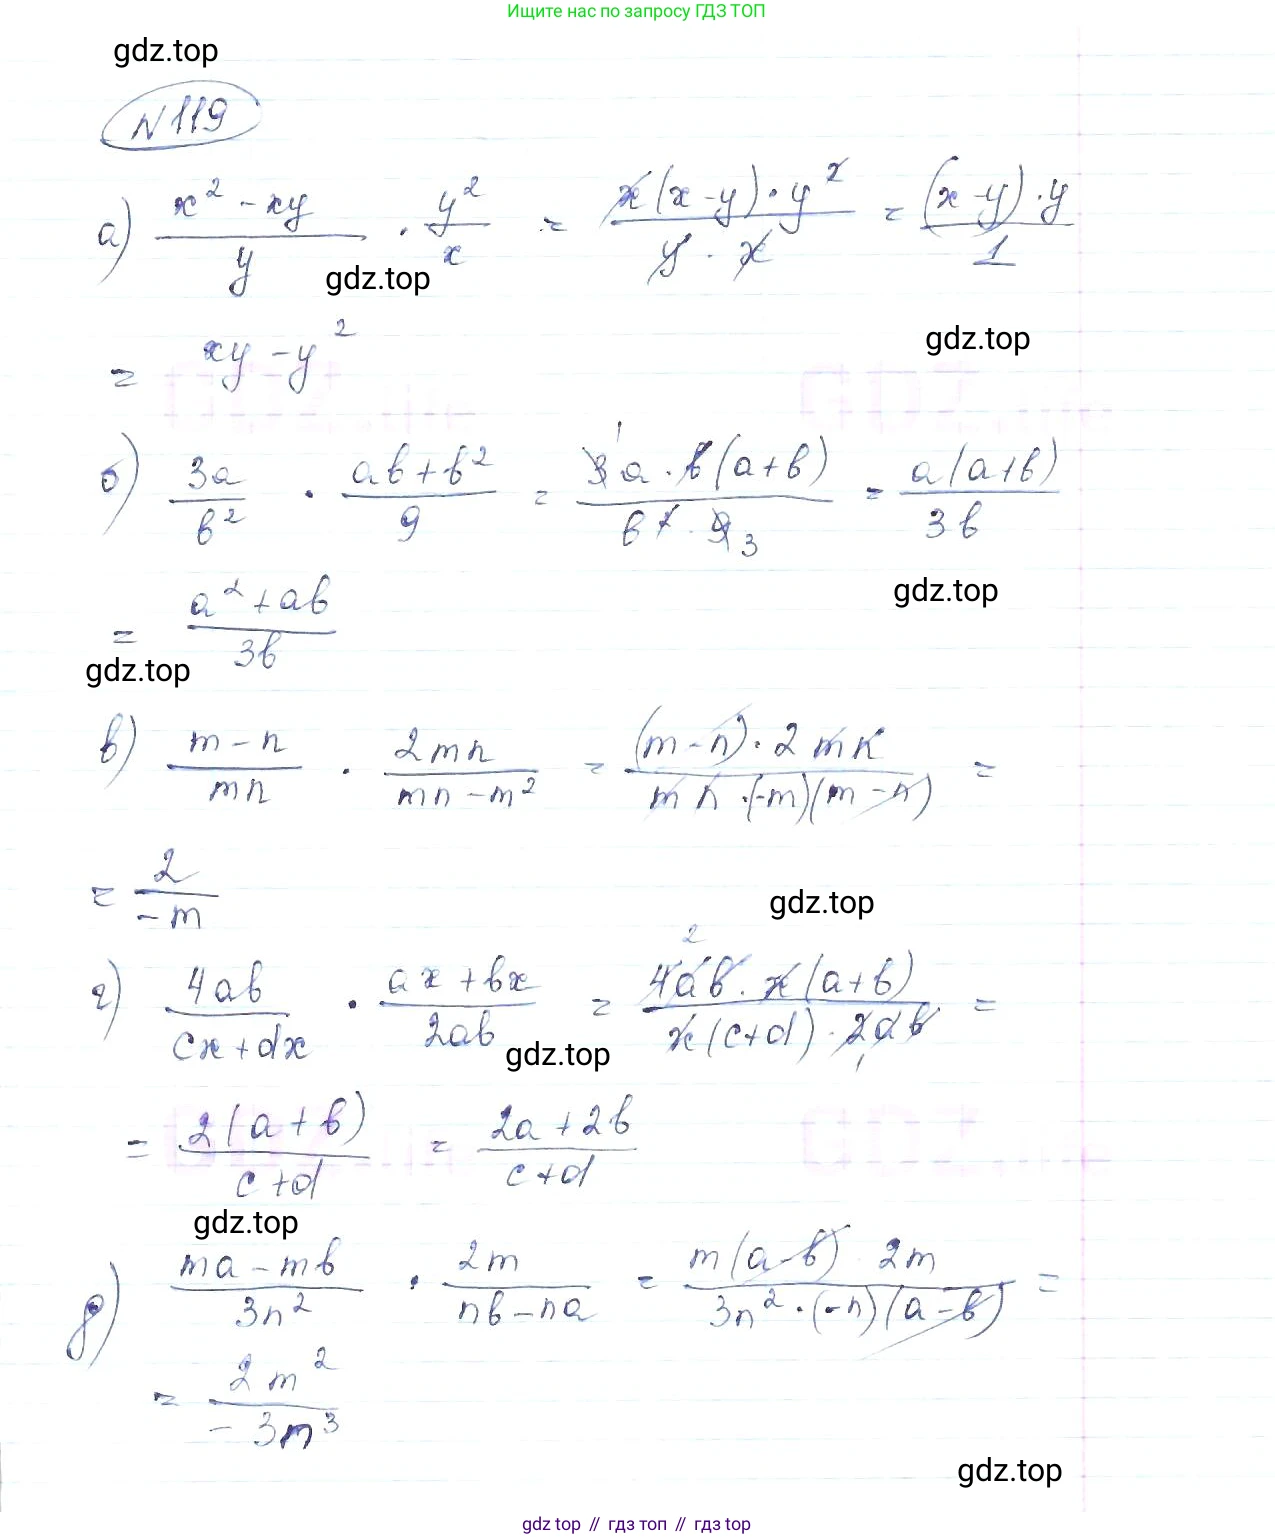 Ищите нас по запросу ГДЗ ТОП
gdz.top
N119
а) (x² - xy)/y · y²/x = (x(x-y) · y²)/(y · x) = ((x-y) · y)/1
gdz.top
= xy - y²
gdz.top
б) 3a/b² · (ab+b²)/9 = (3a · b(a+b))/(b² · 9) = (a(a+b))/3b
1
3
gdz.top
= (a²+ab)/3b
gdz.top
в) (m-n)/mn · 2mn/(mn-m²) = ((m-n) · 2mn)/(mn · (-m)(m-n)) =
= 2/-m
gdz.top
г) 4ab/(cx+dx) · (ax+bx)/2ab = (4ab · x(a+b))/(x(c+d) · 2ab) =
2
1
gdz.top
= 2(a+b)/(c+d) = (2a+2b)/(c+d)
gdz.top
д) (ma-mb)/3n² · 2m/(nb-na) = (m(a-b) · 2m)/(3n² · (-n)(a-b)) =
= 2m²/-3n³
gdz.top
gdz top // гдз топ // gdz top